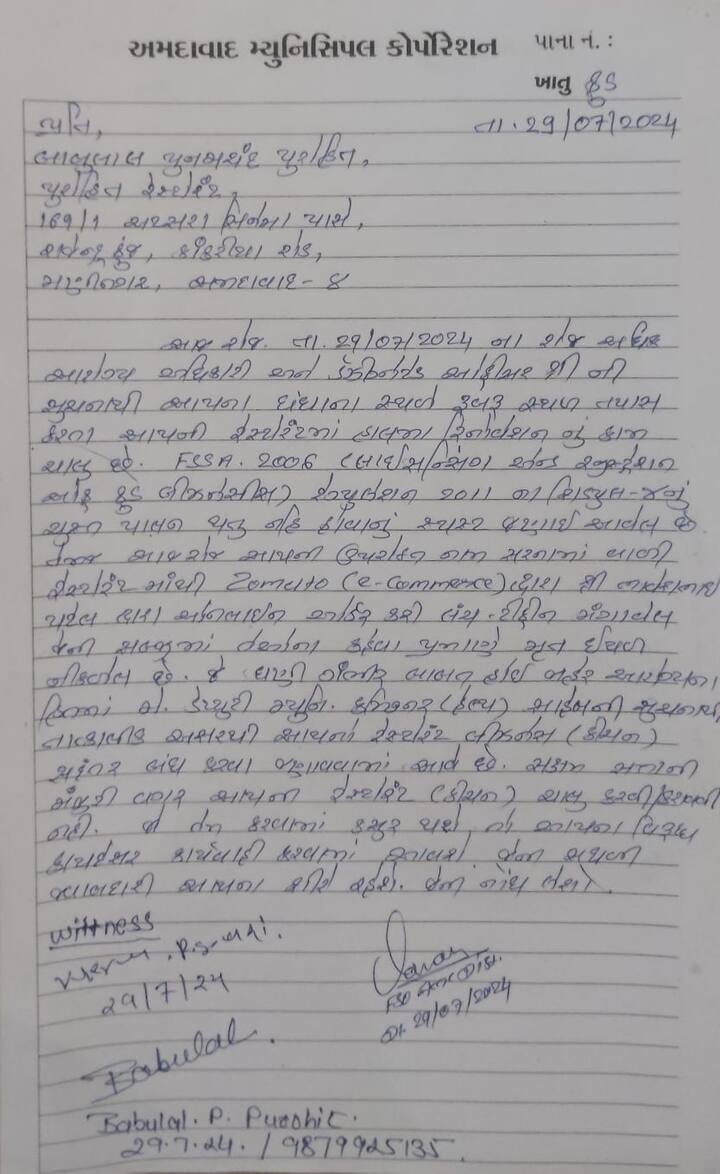 અમદાવાદ મ્યુનિસિપલ કોર્પોરેશન
પાના નં. :
ખાતુ ફુડ
પ્રતિ,
તા. 29/07/2024
બાબુલાલ પુનમચંદ પુરોહિત,
પુરોહિત રેસ્ટોરંટ,
169/1 અપ્સરા સિનેમા પાસે,
કાંકરીયા રોડ,
મણીનગર, અમદાવાદ-8
આજ રોજ. તા. 29/07/2024 ના રોજ અધિક
આરોગ્ય અધિકારી અને ડેઝીગ્નેટેડ ઓફીસર શ્રી ની
સુચનાથી આપના ધંધાના સ્થળે રૂબરૂ સ્થળ તપાસ
કરતા આપની રેસ્ટોરંટમાં હાલમાં રિનોવેશન નું કામ
ચાલુ છે. FSSA. 2006 (લાઈસન્સિંગ એન્ડ રજીસ્ટ્રેશન
ઓફ ફુડ બીઝનેસીસ) રેગ્યુલેશન 2011 ના શિડ્યુલ-4નું
ચુસ્ત પાલન થતુ નહિ હોવાનું સ્પષ્ટ જણાઈ આવેલ છે
તેમજ આજ રોજ આપની ઉપરોક્ત નામ સરનામાં વાળી
રેસ્ટોરંટ માંથી Zomato (e-commerce) દ્વારા શ્રી
પટેલ દ્વારા ઓનલાઈન ઓર્ડર કરી લંચ-ડીશ મંગાવેલ
તેની કહેવા મુજબ મૃત ઈયળ
નીકળેલ છે. જે ઘણી ગંભીર બાબત હોઈ જાહેર આરોગ્યના
હિતમાં મે. ડેપ્યુટી મ્યુનિ. કમિશનર (હેલ્થ) સાહેબની સુચનાથી
તાત્કાલીક અસરથી આપનો રેસ્ટોરંટ બીઝનેસ (કીચન)
સદંતર બંધ કરવા જણાવવામાં આવે છે. સક્ષમ સત્તાની
મંજુરી વગર આપની રેસ્ટોરંટ (કીચન) ચાલુ કરવી/કરાવવી
નહી. જો તેમ કરવામાં કસુર થશે તો આપના વિરૂધ્ધ
કાયદેસર કાર્યવાહી કરવામાં આવશે. જેની સઘળી
જવાબદારી આપના શીરે રહેશે. જેની નોંધ લેશો.
Wittness
29/7/24
FSO AMC
Dt. 29/07/2024
Babulal.
Babulal. P. Purohit.
29.7.24. / 9879925135.